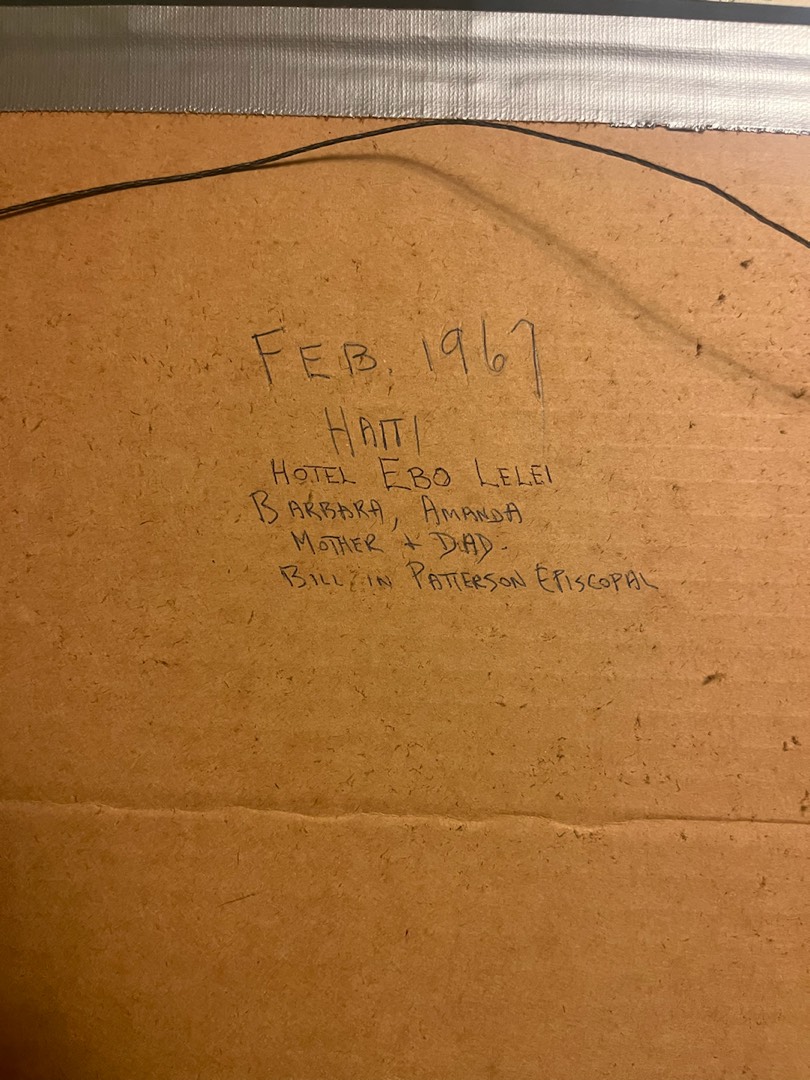 FEB. 1967
HAITI
HOTEL EBO LELEI
BARBARA, AMANDA
MOTHER + DAD.
BILL IN PATTERSON EPISCOPAL